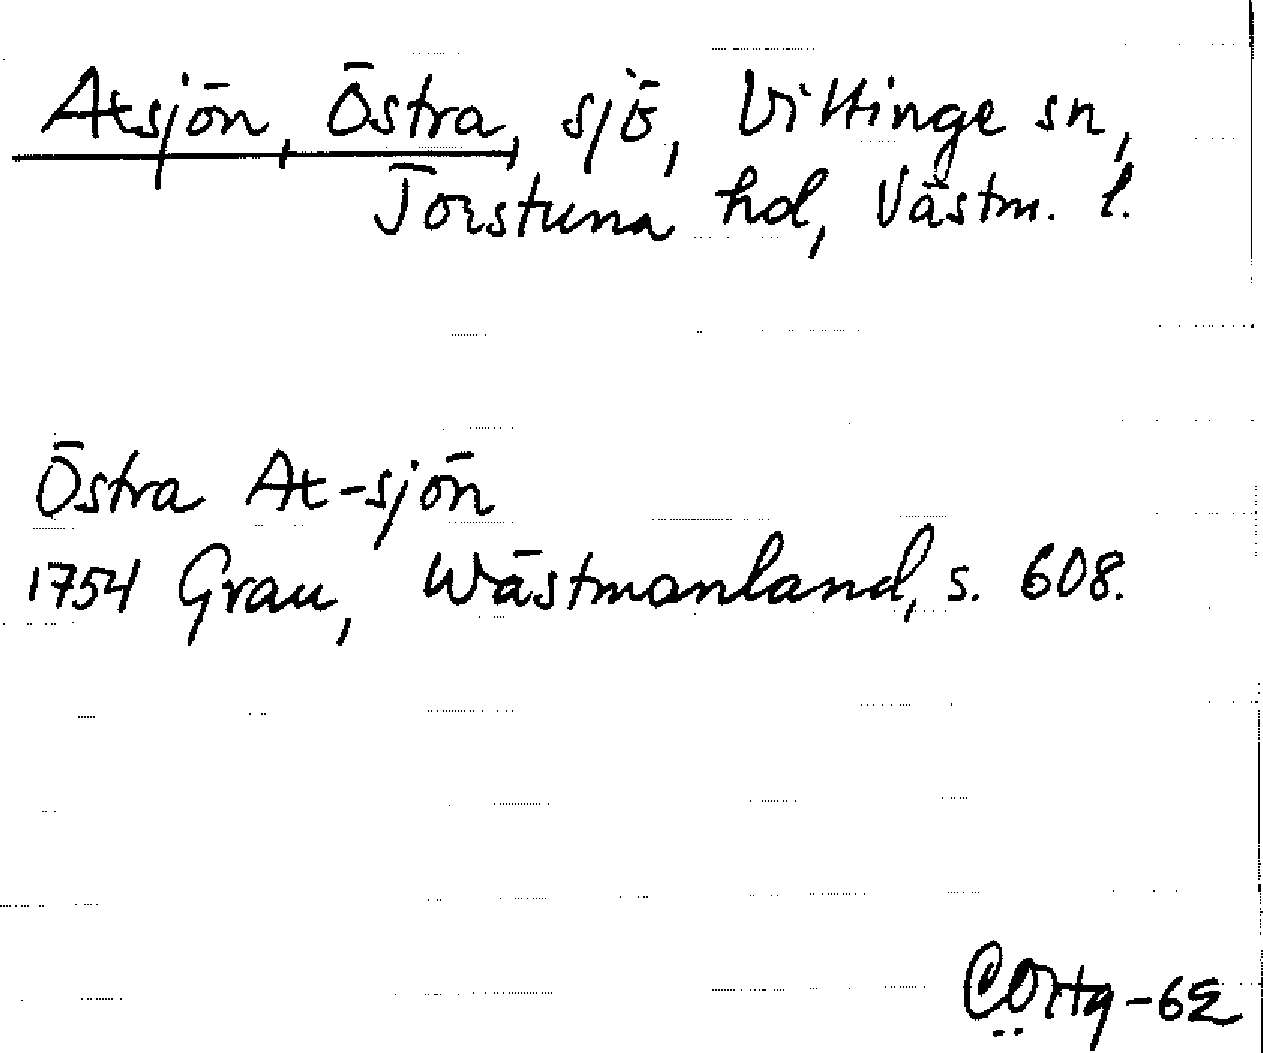 Atsjön, Östra, sjö, Vittinge sn,
Torstuna hd, Västm. l.
Östra At-sjön
1754 Grau, Wästmanland, s. 608.
-62